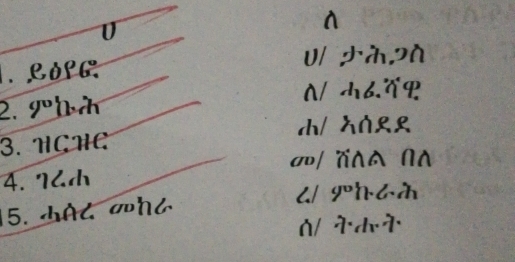 ሀ
1. ይዕየፍ
2. ምኩሕ
3. ዝርዝር
4. ገረሐ
5. ሓሰረ መከራ
ለ
ሀ/ ታሕጋስ
ለ/ ሓፈሻዊ
ሐ/ ኣሰደደ
መ/ ሸለል በለ
ረ/ ምኩራሕ
ሰ/ ትሑት